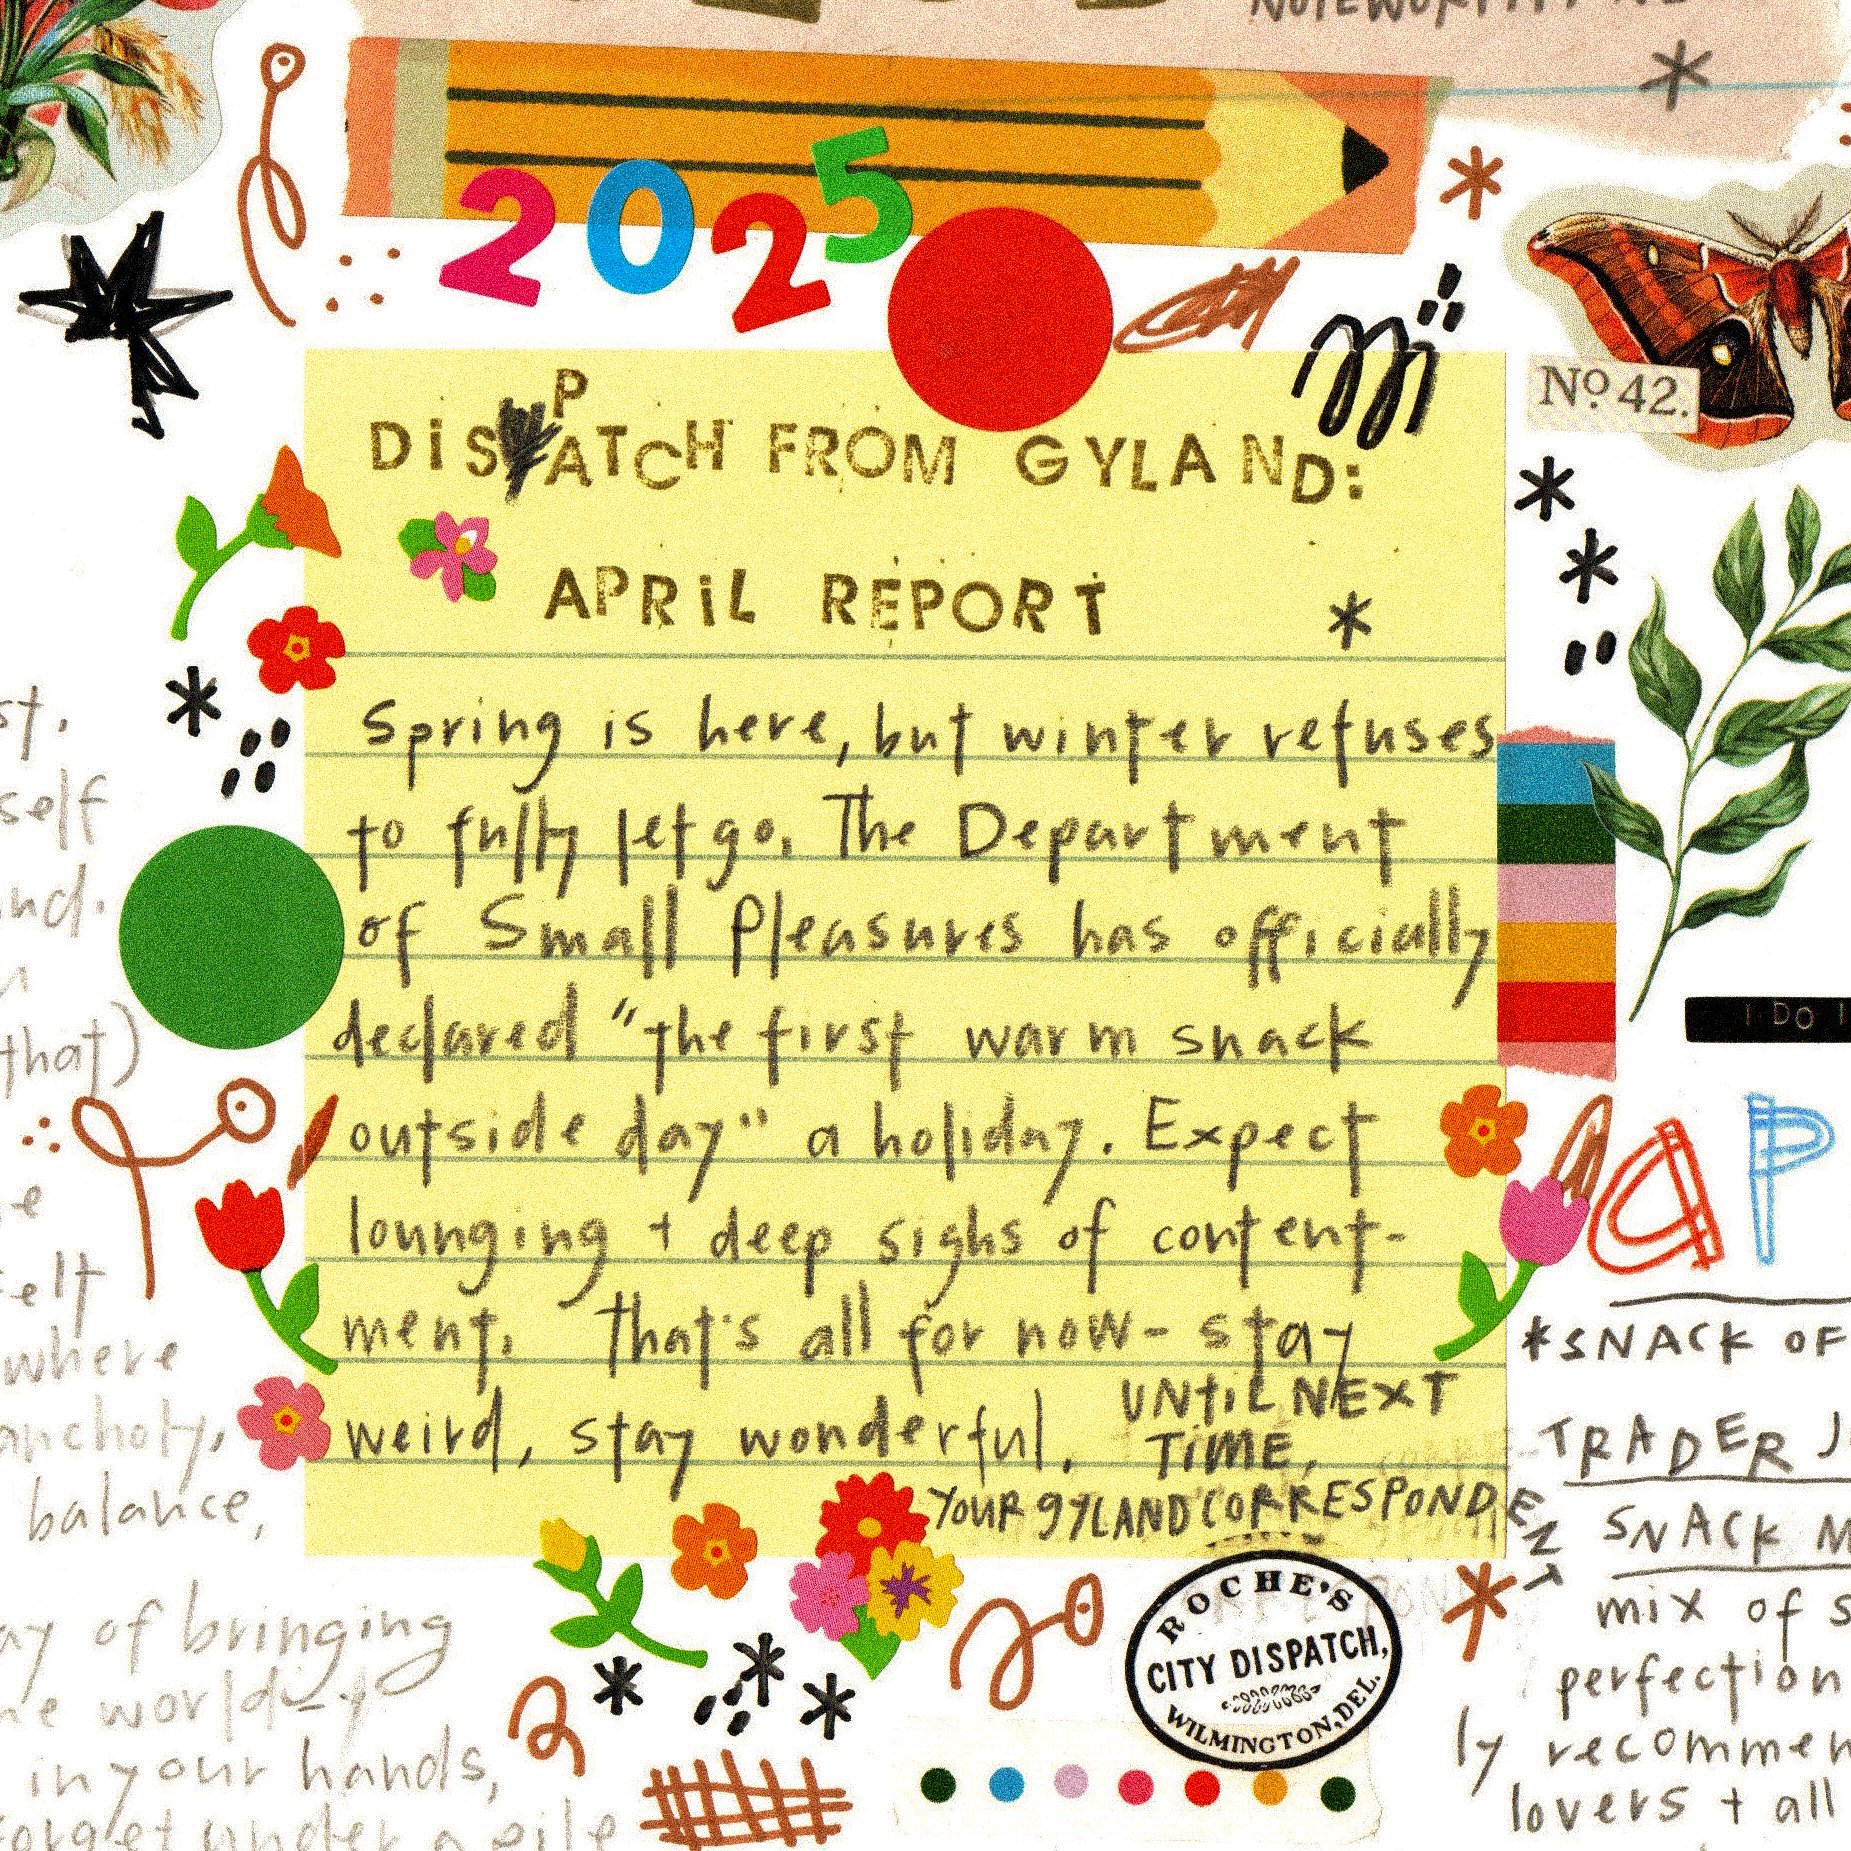 2025
No. 42.
DiSPATCH FROM GYLAND:
APRiL REPORT
Spring is here, but winter refuses
to fully let go. The Department
of Small Pleasures has officially
declared "the first warm snack
outside day" a holiday. Expect
lounging + deep sighs of content-
ment. That's all for now- stay
weird, stay wonderful.
UNTiL NEXT
TiME,
YOUR GYLAND CORRESPONDENT
ROCHE'S
CITY DISPATCH,
WILMINGTON, DEL.
self
that)
where
balance,
of bringing
world
in your hands,
forget under a pile
I DO I
AP
*SNACK OF
TRADER J
SNACK M
mix of s
perfection
ly recommen
lovers + all